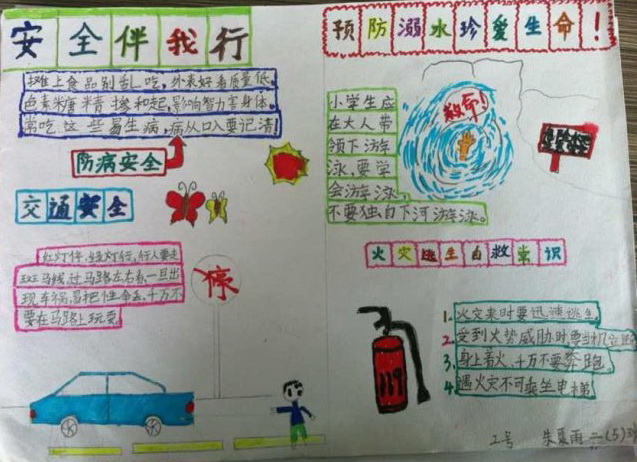 安全伴我行
摊上食品别乱吃，外表好看质量低。
色素糖精掺和起，影响智力害身体。
常吃这些易生病，病从口入要记清
防病安全
交通安全
红灯停，绿灯行，行人要走
斑马线，过马路左右看，一旦出
现车祸，易把性命丢，千万不
要在马路上玩耍
停
预防溺水珍爱生命！
小学生应
在大人带
领下游
泳，要学
会游泳，
不要独自下河游泳。
救命！
火灾逃生自救常识
1.火灾来时要迅速逃生
2.受到火势威胁时要当机立断
3.身上着火，千万不要奔跑
4.遇火灾不可乘坐电梯
119
2号 朱夏雨 二(5)